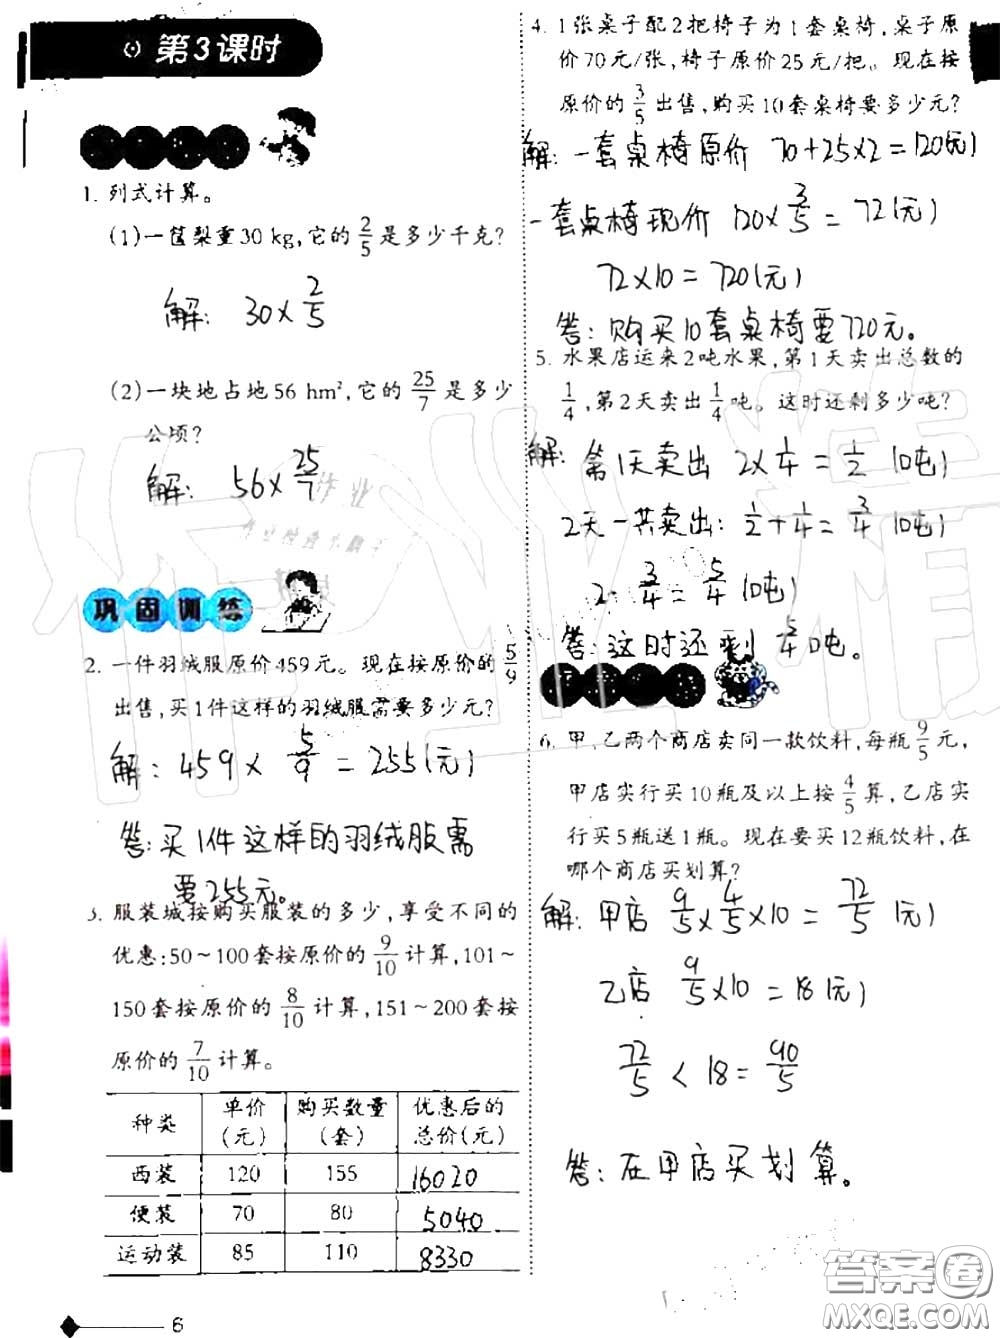 第3课时
1. 列式计算。
(1)一筐梨重30 kg,它的2/5是多少千克?
解: 30×2/5
(2)一块地占地56 hm²,它的25/7是多少
公顷?
解: 56×25/7
巩固训练
2. 一件羽绒服原价459元。现在按原价的5/9
出售,买1件这样的羽绒服需要多少元?
解: 459 × 5/9 = 255(元)
答:买1件这样的羽绒服需
要255元。
3. 服装城按购买服装的多少,享受不同的
优惠:50~100套按原价的9/10计算,101~
150套按原价的8/10计算,151~200套按
原价的7/10计算。
种类 单价(元) 购买数量(套) 优惠后的总价(元)
西装 120 155 16020
便装 70 80 5040
运动装 85 110 8330
6
4. 1张桌子配2把椅子为1套桌椅,桌子原
价70元/张,椅子原价25元/把。现在按
原价的3/5出售,购买10套桌椅要多少元?
解: 一套桌椅原价 70+25×2=120(元)
一套桌椅现价 120×3/5=72(元)
72×10=720(元)
答:购买10套桌椅要720元。
5. 水果店运来2吨水果,第1天卖出总数的
1/4,第2天卖出1/4吨。这时还剩多少吨?
解: 第1天卖出 2×1/4=1/2(吨)
2天一共卖出: 1/2+1/4=3/4(吨)
2-3/4=5/4(吨)
答:这时还剩5/4吨。
6. 甲、乙两个商店卖同一款饮料,每瓶9/5元,
甲店实行买10瓶及以上按4/5算,乙店实
行买5瓶送1瓶。现在要买12瓶饮料,在
哪个商店买划算?
解: 甲店 9/5×4/5×10=72/5(元)
乙店 9/5×10=18(元)
72/5<18=90/5
答:在甲店买划算。
答案圈
MXQE.COM